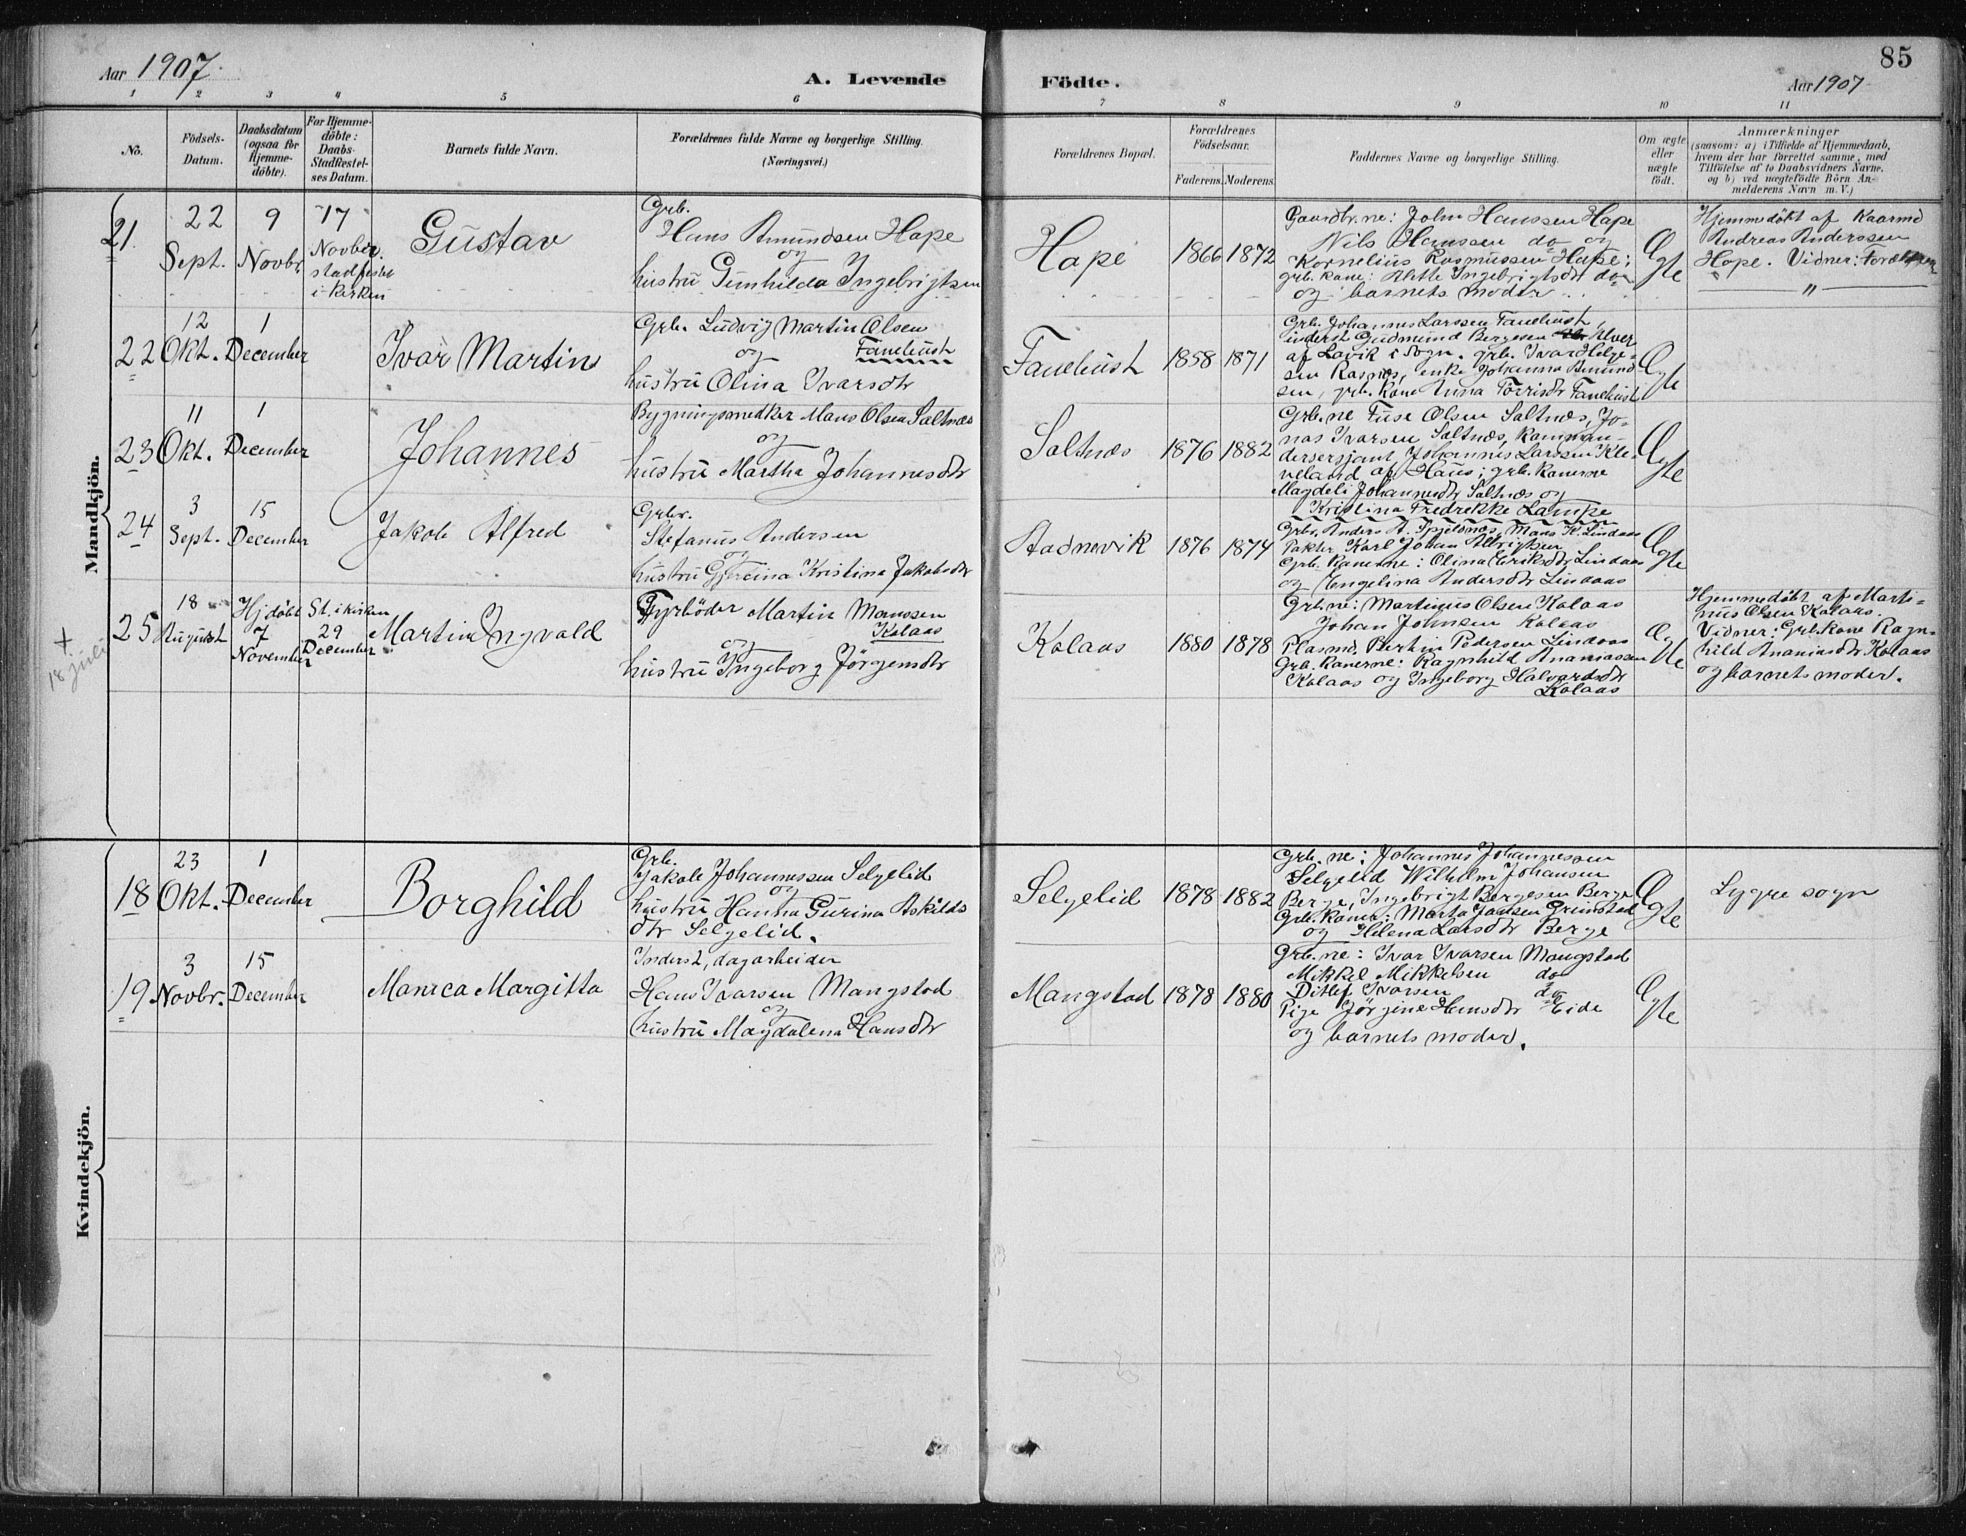 Aar 1907.
A. Levende
Födte.
Aar 1907
85
1 2 3 4 5 6 7 8 9 10 11
No.
Födsels-
Datum.
Daabsdatum
(ogsaa for
Hjemme-
döbte).
For Hjemme-
döbte:
Daabs-
Stadfæstel-
ses Datum.
Barnets fulde Navn.
Forældrenes fulde Navne og borgerlige Stilling.
(Næringsvei.)
Forældrenes Bopæl.
Forældrenes
Födselsaar.
Faderens. Moderens.
Faddernes Navne og borgerlige Stilling.
Om ægte
eller
uægte
födt.
Anmærkninger
(saasom: a) i Tilfælde af Hjemmedaab,
hvem der har forrettet samme, med
Tilföielse af to Daabsvidners Navne.
og b) ved uægtefödte Börn An-
melderens Navn m. V.)
Mandkjön.
21.
22
Sept.
9
Novbr.
17
Novbr.
stadfestet
i kirken
Gustav
Grb.
Hans Amundsen Hope
og
hustru Gunhilda Ingebrigtsen
Hope
1866 1872
Gaardbr.ne: John Hanssen Hope
Nils Hanssen do og
Kornelius Rasmussen Hope;
grb. kone: Alette Ingebrigtsdtr do
og barnets moder
Ægte
Hjemmedöbt af Kaarmd
Andreas Anderssen
Hope. Vidner: Forældrene
"
22
12
Okt.
1
December
Ivar Martin
Grb. Ludvig Martin Olsen
og Fanebust
hustru Olina Ivarsdtr
Fanebust
1858 1871
Grb. Johannes Larssen Fanebust,
inderst Gudmund Bergesen Alver
af Lavik i Sogn. grb. Ivar Helge-
sen Rasnes, enke Johanna Amund
sen, grb. kone Anna Torrisdtr Fanebust
Ægte
23
11
Okt.
1
December
Johannes
Bygningssnedker Mans Olsen Saltnæs
og
hustru Martha Johannesdtr
Saltnæs
1876 1882
Grb.ne Tuse Olsen Saltnæs, Jo-
nas Ivarsen Saltnæs, Komman-
dersersjant Johannes Larssen Kle-
veland af Haus; grb. konerne
Magdeli Johannesdtr Saltnæs og
Kristina Fredrekke Lampe
Ægte
24
3
Sept.
15
December
Jakob Alfred
Grbr.
Stefanus Andersen
og
hustru Gjertina Kristina Jakobsdtr
Aadnevik
1876 1874
Grbr. Anders A. Spjeldnæs, Mans K. Lindaas
Pakter Karl Johan Albrigtsen
Grb. Konerne: Olina Eriksdtr Lindaas
og Engelina Andersdtr Lindaas
Ægte
+
18 juli
25
18
August
Hjdöbt
7
November
St. i kirken
29
December
Martin Ingvald
Fyrböder Martin Monssen
og Kolaas
hustru Ingeborg Jörgensdtr
Kolaas
1880 1878
Grb.ne: Martinus Olsen Kolaas
Johan Johnsen Kolaas
Plasmd. Bertin Pedersen Lindaas
Grb. Konerne: Ragnhild Ananiassen
Kolaas og Ingeborg Halvardsdtr
Kolaas
Ægte
Hjemmedöbt af Marti-
nus Olsen Kolaas.
Vidner: Grb. kone Ragn-
hild Ananiasdtr Kolaas
og barnets moder.
Kvindekjön.
18
23
Okt.
1
December
Borghild
Grb.
Jakob Johannessen Selgelid
og
hustru Hanna Gurina Askilds
dtr Selgelid.
Selgelid
1878 1882
Grb.ne: Johannes Johannessen
Selgelid Wilhelm Johansen
Berge, Ingebrigt Bergesen Berge
Grb. Koner: Marta Jansen Grimstad
og Helena Larsdtr Berge
Ægte
Lygre sogn
19
3
Novbr.
15
December
Monica Margitta
Inderst, dagarbeider
Hans Ivarsen Mangstad
og
hustru Magdalena Hansdtr
Mangstad
1878 1880
Grb.ne: Ivar Ivarsen Mangstad
Mikkel Mikkelsen do
Ditlef Ivarsen do
Pige Jörgine Hansdtr Eide
og barnets moder.
Ægte